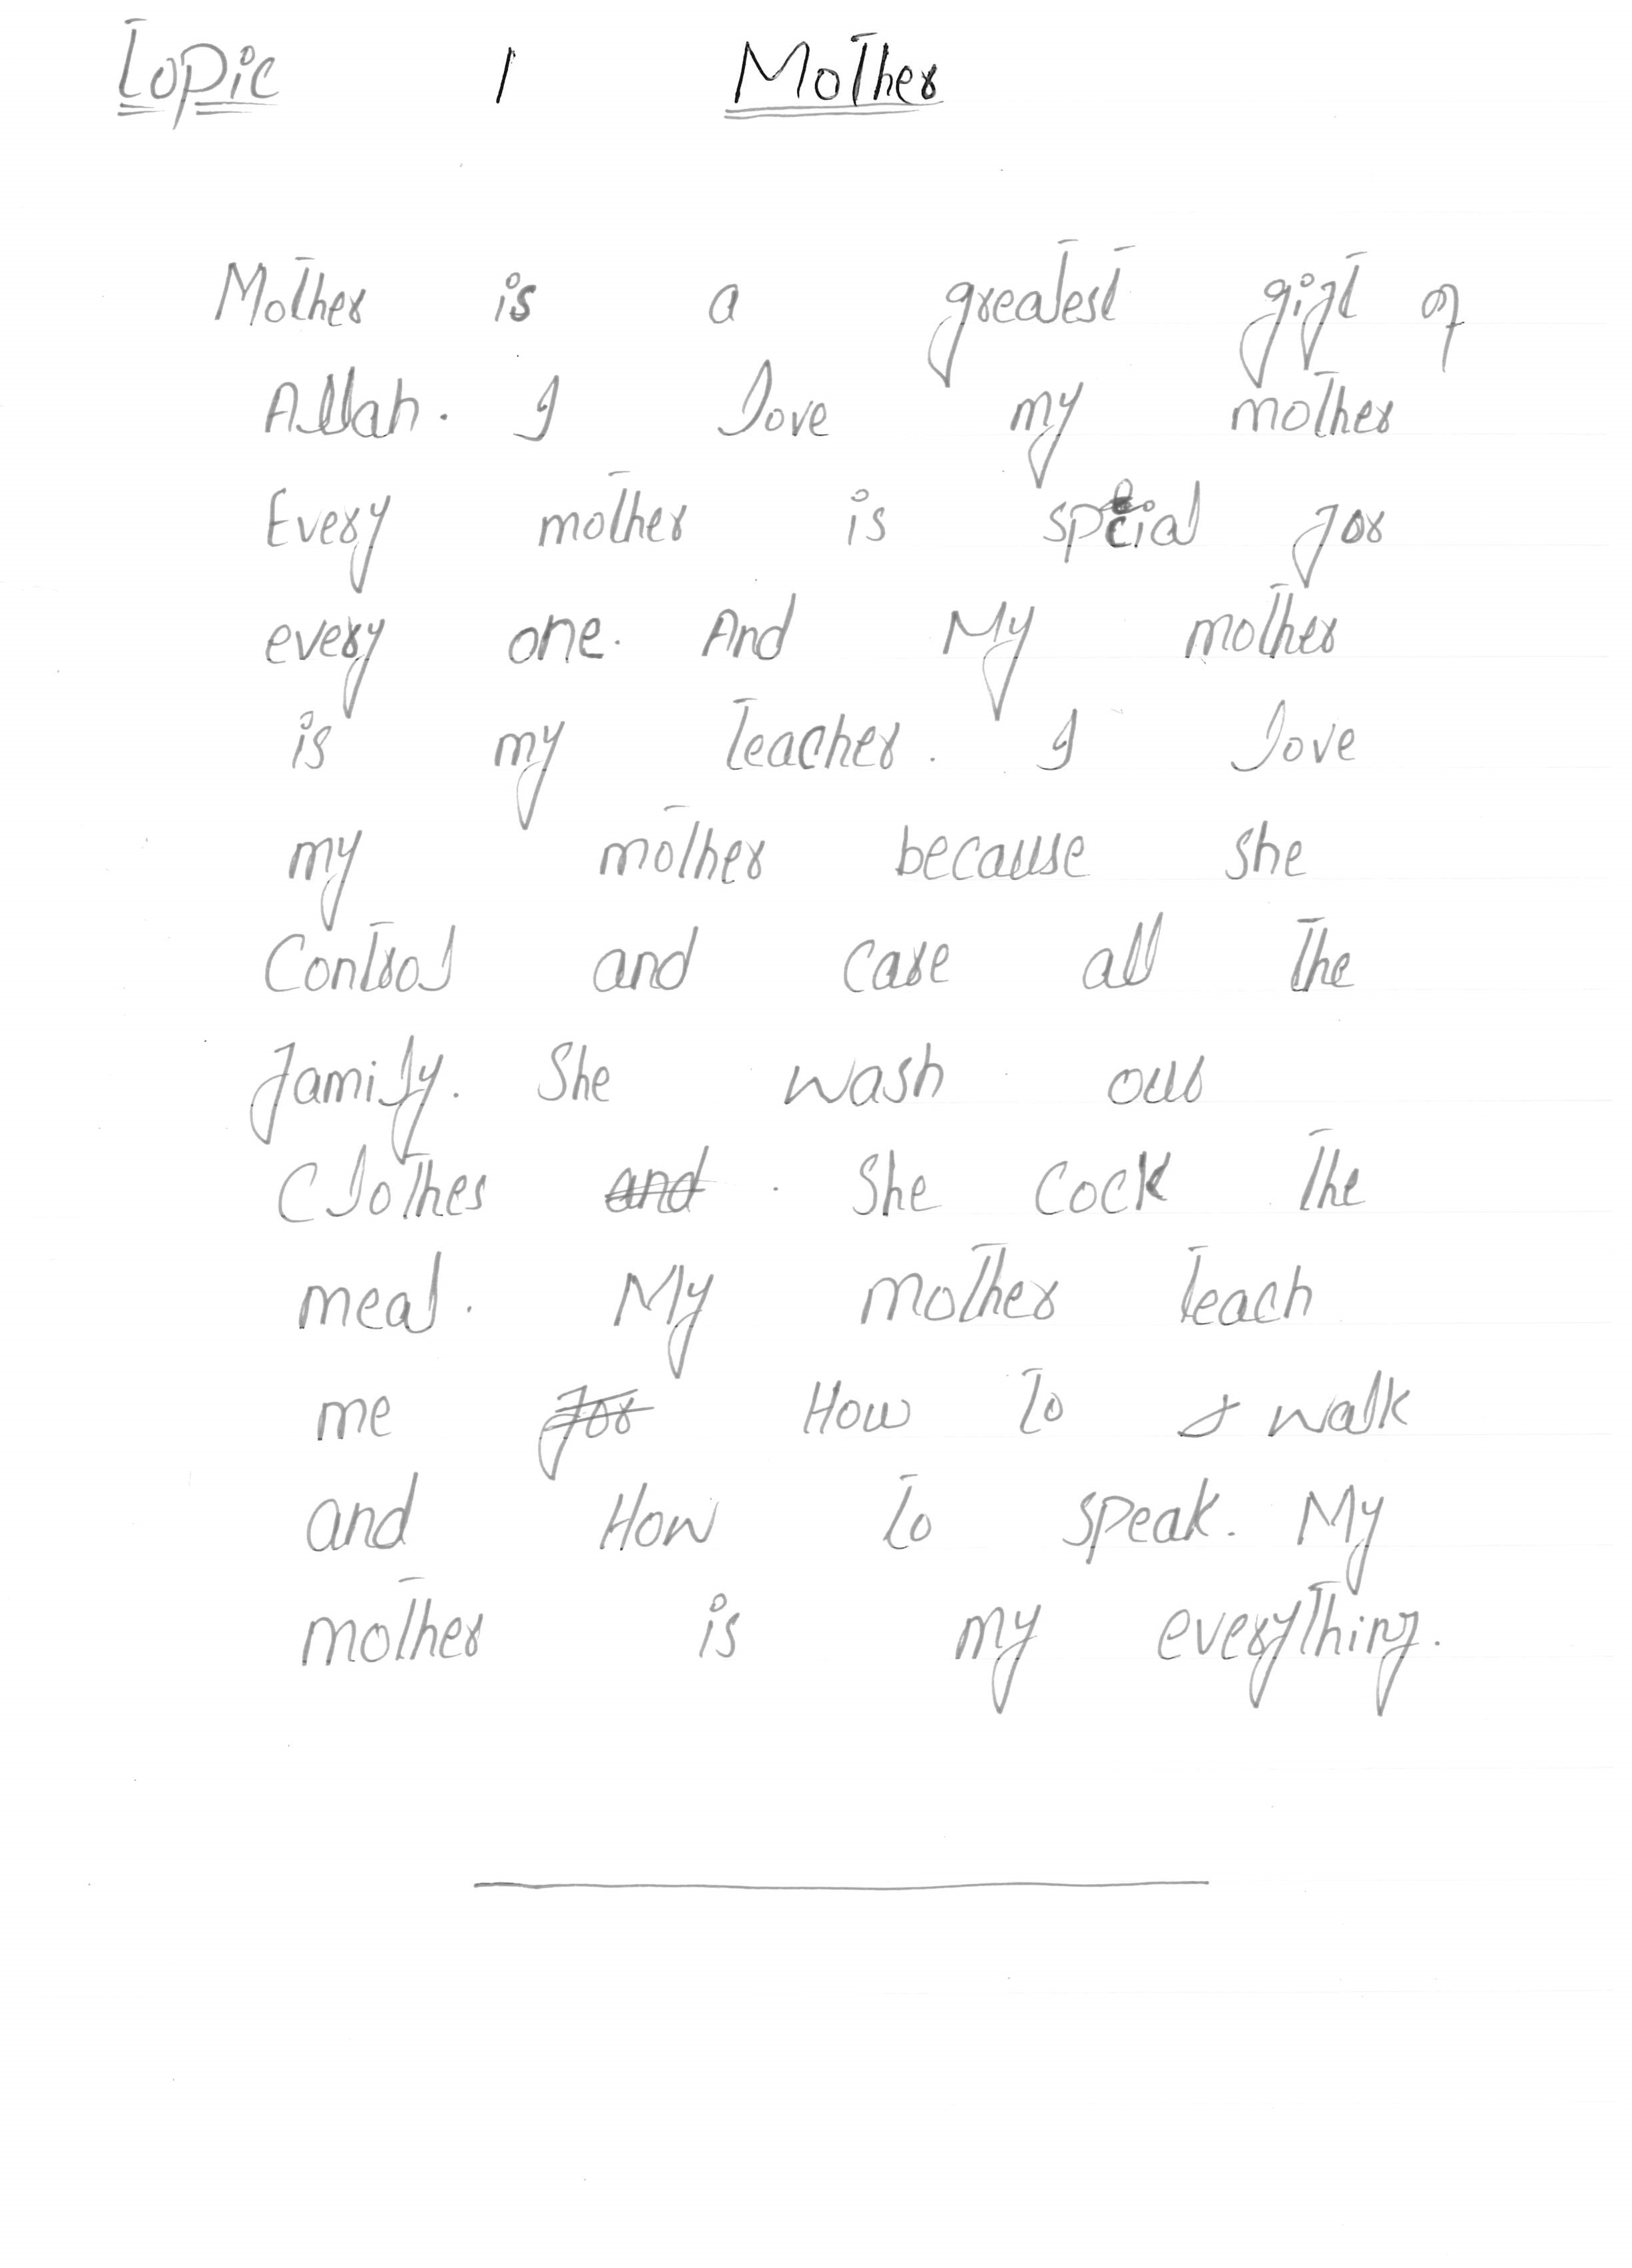 Topic 1 Mother
Mother is a greatest gift of
Allah. I love my mother
Every mother is special for
every one. And My mother
is my teacher. I love
my mother because she
Control and care all the
family. She wash our
Clothes and . She cock the
meal. My mother teach
me for How to walk
and How to speak. My
mother is my everything.